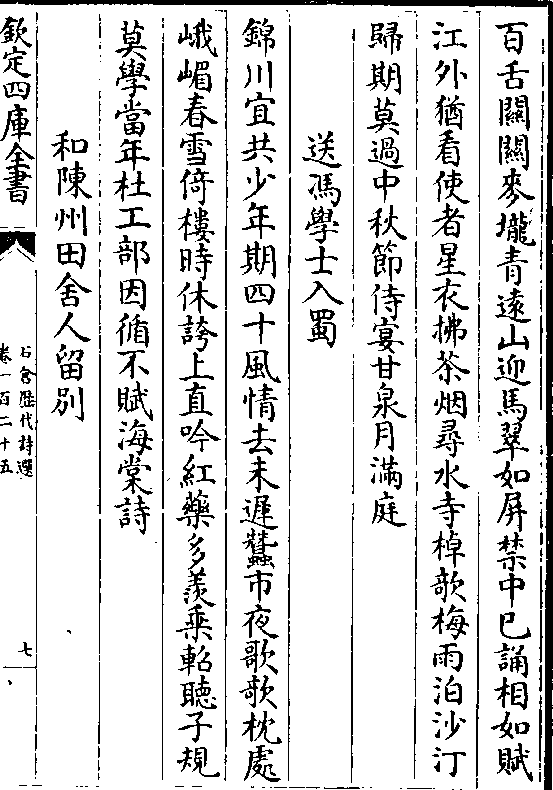 百舌關關麥壠青遠山迎馬翠如屏禁中已誦相如賦
江外猶看使者星衣拂茶烟尋水寺棹歌梅雨泊沙汀
歸期莫過中秋節侍宴甘泉月滿庭
送馮學士入蜀
錦川宜共少年期四十風情去未遲蠶市夜歌歌枕處
峨嵋春雪倚樓時休誇上直吟紅藥多羡乗軺聽子規
莫學當年杜工部因循不賦海棠詩
和陳州田舍人留别
欽定四庫全書
石倉歷代詩選
卷一百二十五
七